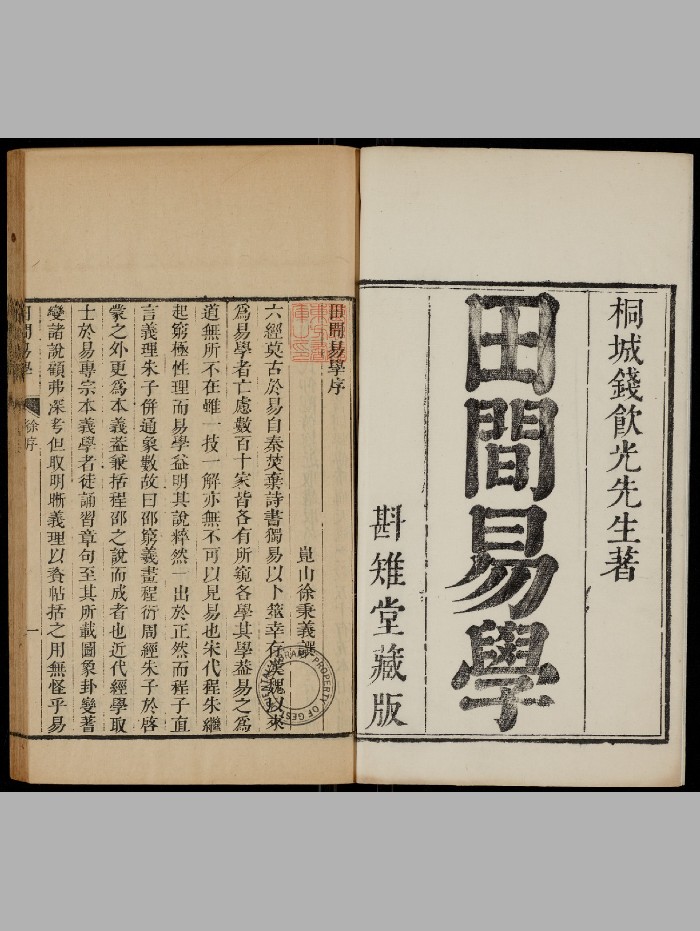 桐城錢飲光先生著
田間易學
斟雉堂藏版
田間易學序
崑山徐秉義譔
六經莫古於易自秦焚棄詩書獨易以卜筮幸存漢魏以來
爲易學者亡慮數百十家皆各有所窺各學其學葢易之爲
道無所不在雖一技一解亦無不可以見易也宋代程朱繼
起窮極性理而易學益明其說粹然一出於正然而程子直
言義理朱子併通象數故曰邵窮羲畫程衍周經朱子於啓
蒙之外更爲本義葢兼括程邵之說而成者也近代經學取
士於易專宗本義學者徒誦習章句至其所載圖象卦變蓍
變諸說顧弗深考但取明晰義理以資帖括之用無怪乎易
田間易學
徐序
一
PROPERTY OF GEST ORIENTAL LIBRARY